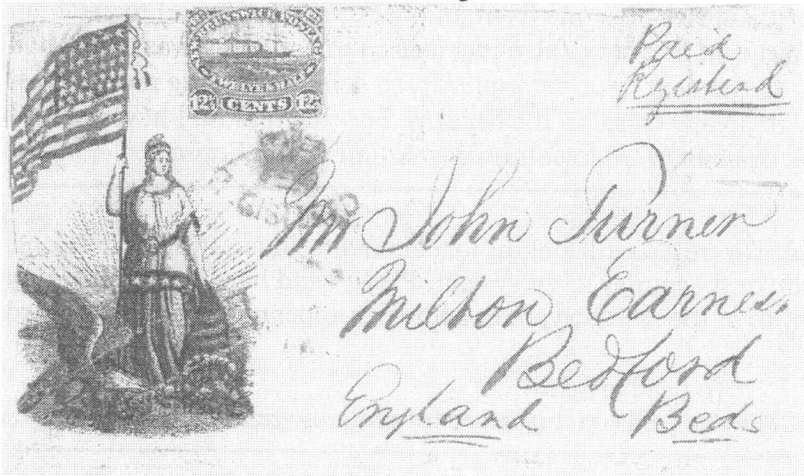 NEW BRUNSWICK POSTAGE
TWELVE & HALF
12½ CENTS 12½
Paid
Registered
Mr John Turner
Milton Earness
Bedford
England Beds